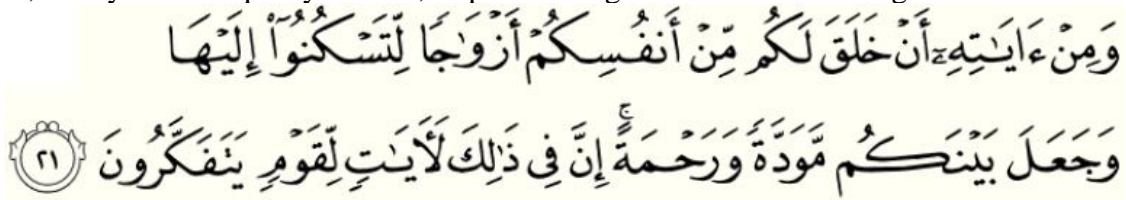 وَمِنْ ءَايَـٰتِهِۦٓ أَنْ خَلَقَ لَكُم مِّنْ أَنفُسِكُمْ أَزْوَٰجًا لِّتَسْكُنُوٓا۟ إِلَيْهَا
وَجَعَلَ بَيْنَكُم مَّوَدَّةً وَرَحْمَةً ۚ إِنَّ فِى ذَٰلِكَ لَـَٔايَـٰتٍ لِّقَوْمٍ يَتَفَكَّرُونَ ٢١